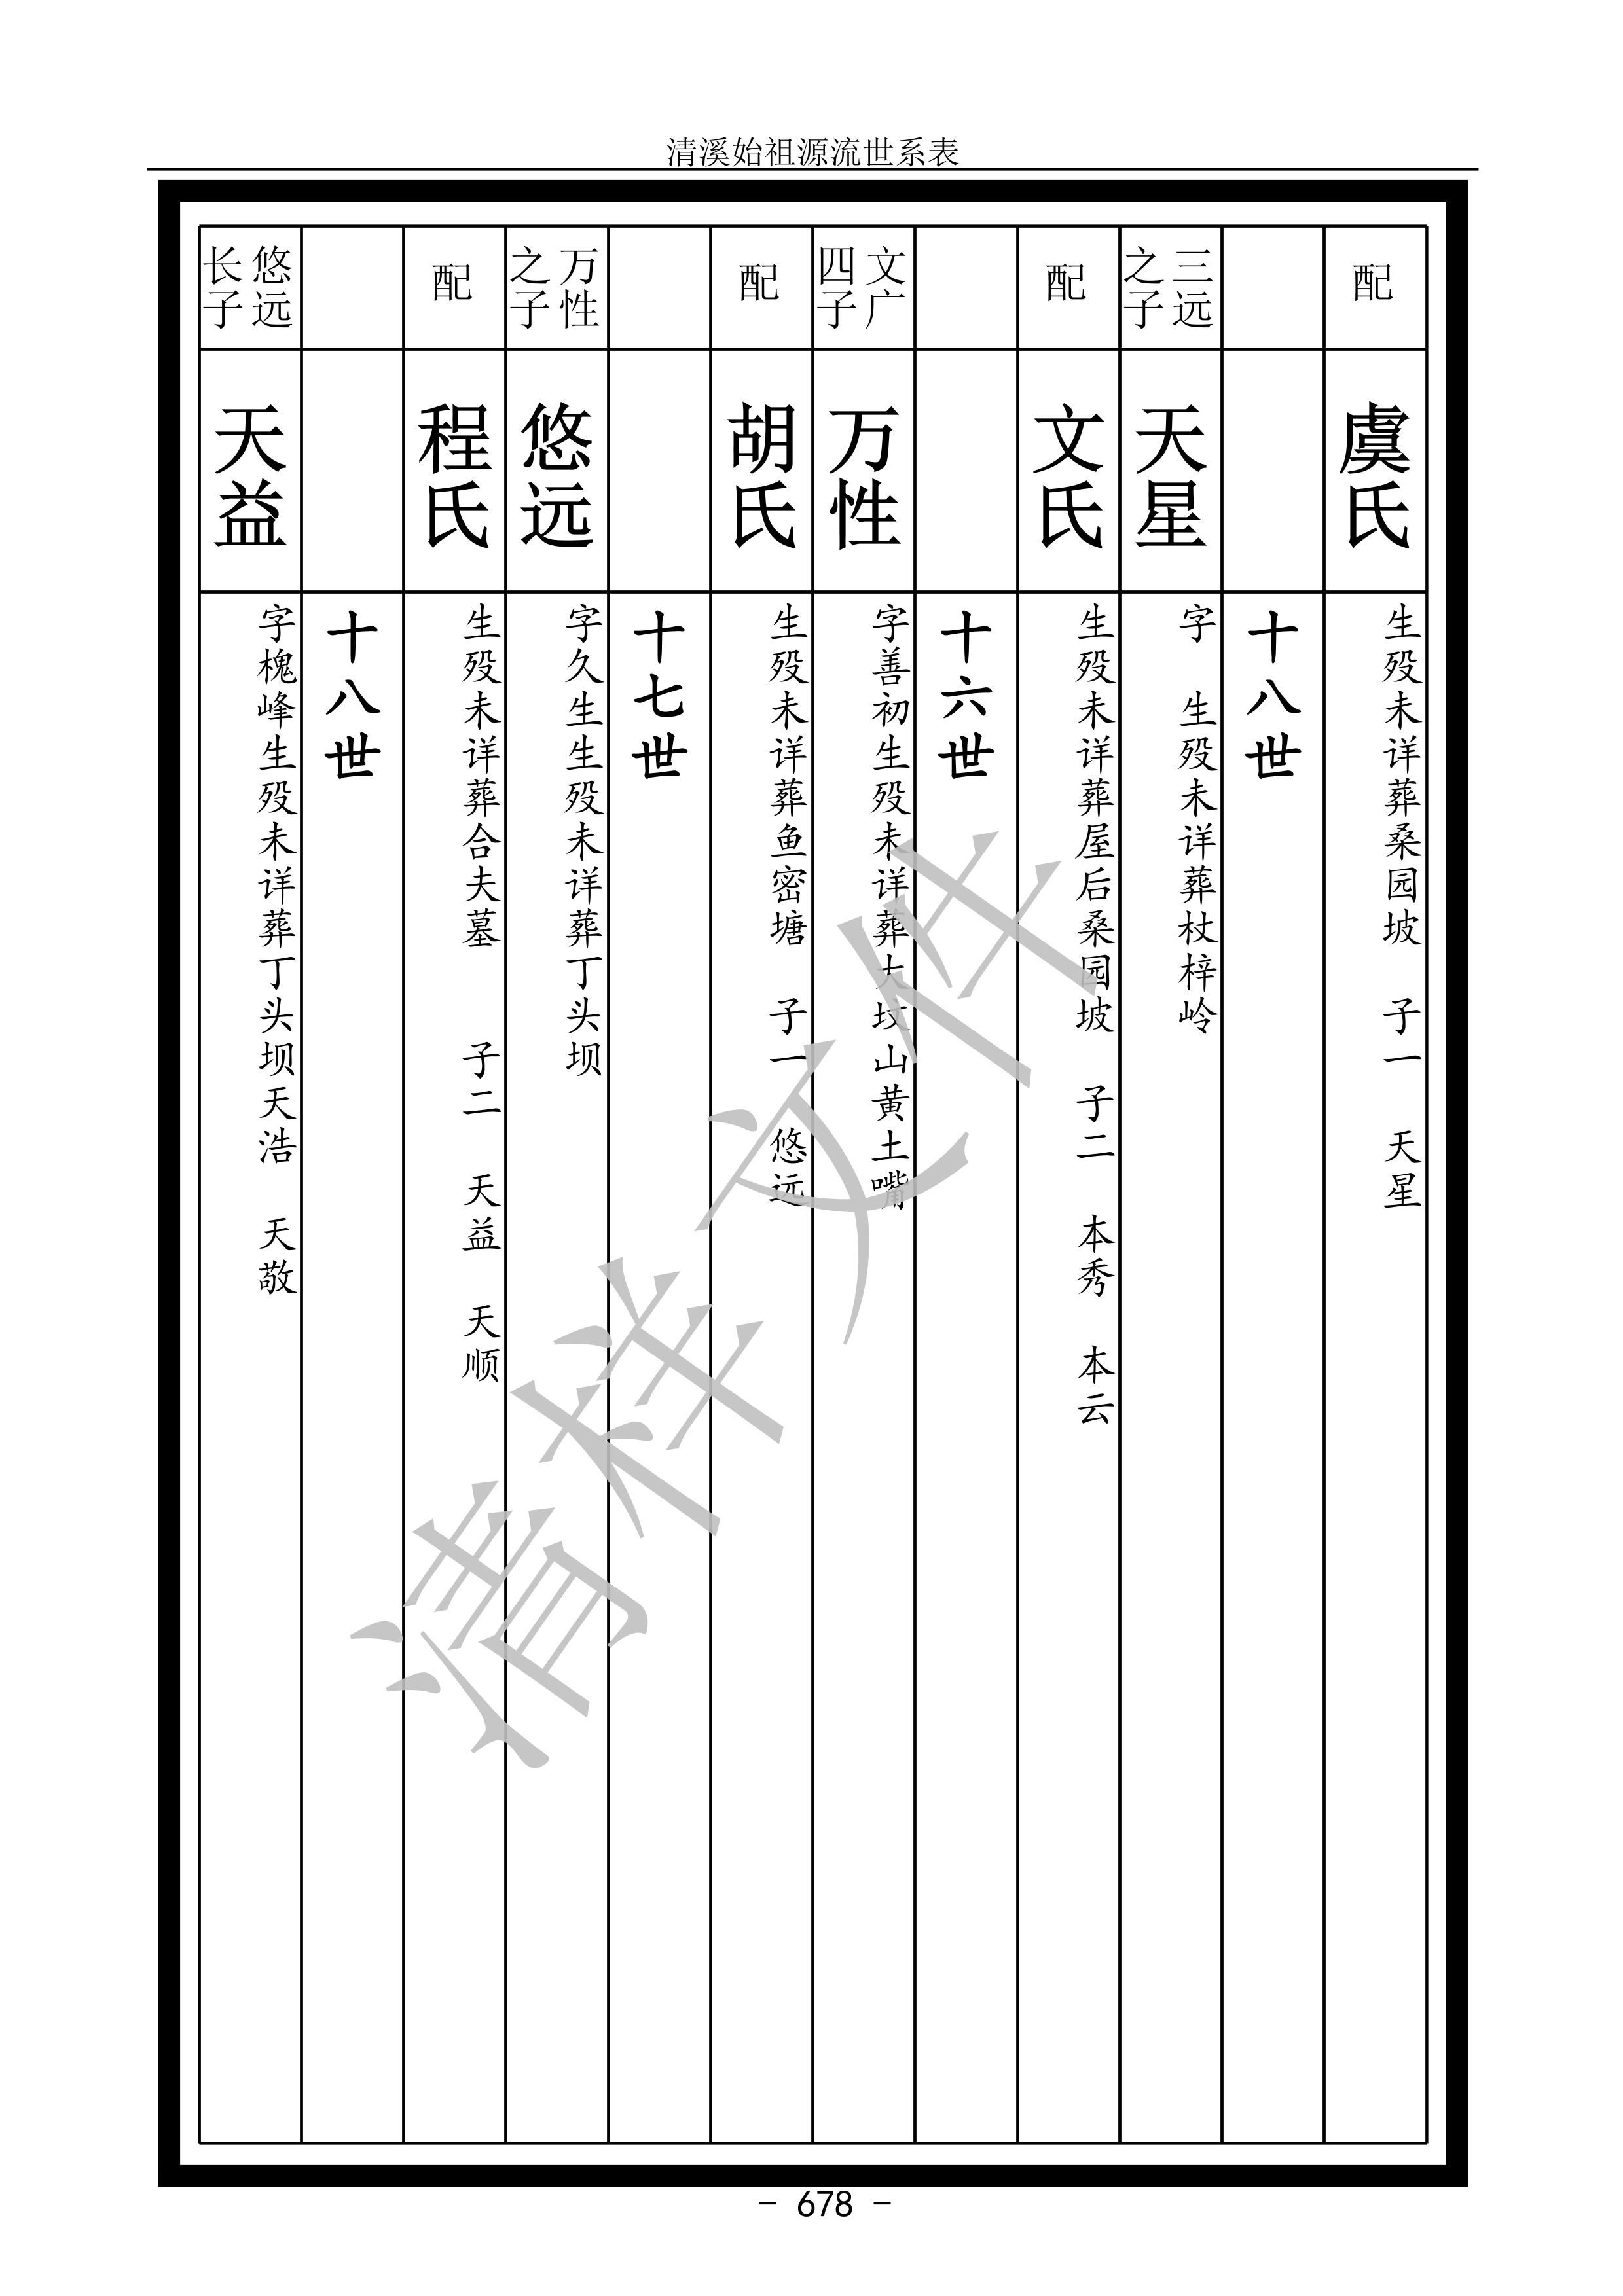 清溪始祖源流世系表
配
虞氏
生殁未详葬桑园坡 子一 天星
十八世
三远
之子
天星
字 生殁未详葬杖梓岭
配
文氏
生殁未详葬屋后桑园坡 子二 本秀 本云
十六世
文广
四子
万性
字善初生殁未详葬大坟山黄土嘴
配
胡氏
生殁未详葬鱼密塘 子一 悠远
十七世
万性
之子
悠远
字久生生殁未详葬丁头坝
配
程氏
生殁未详葬合夫墓 子二 天益 天顺
十八世
悠远
长子
天益
字槐峰生殁未详葬丁头坝天浩 天敬
清样文件
- 678 -